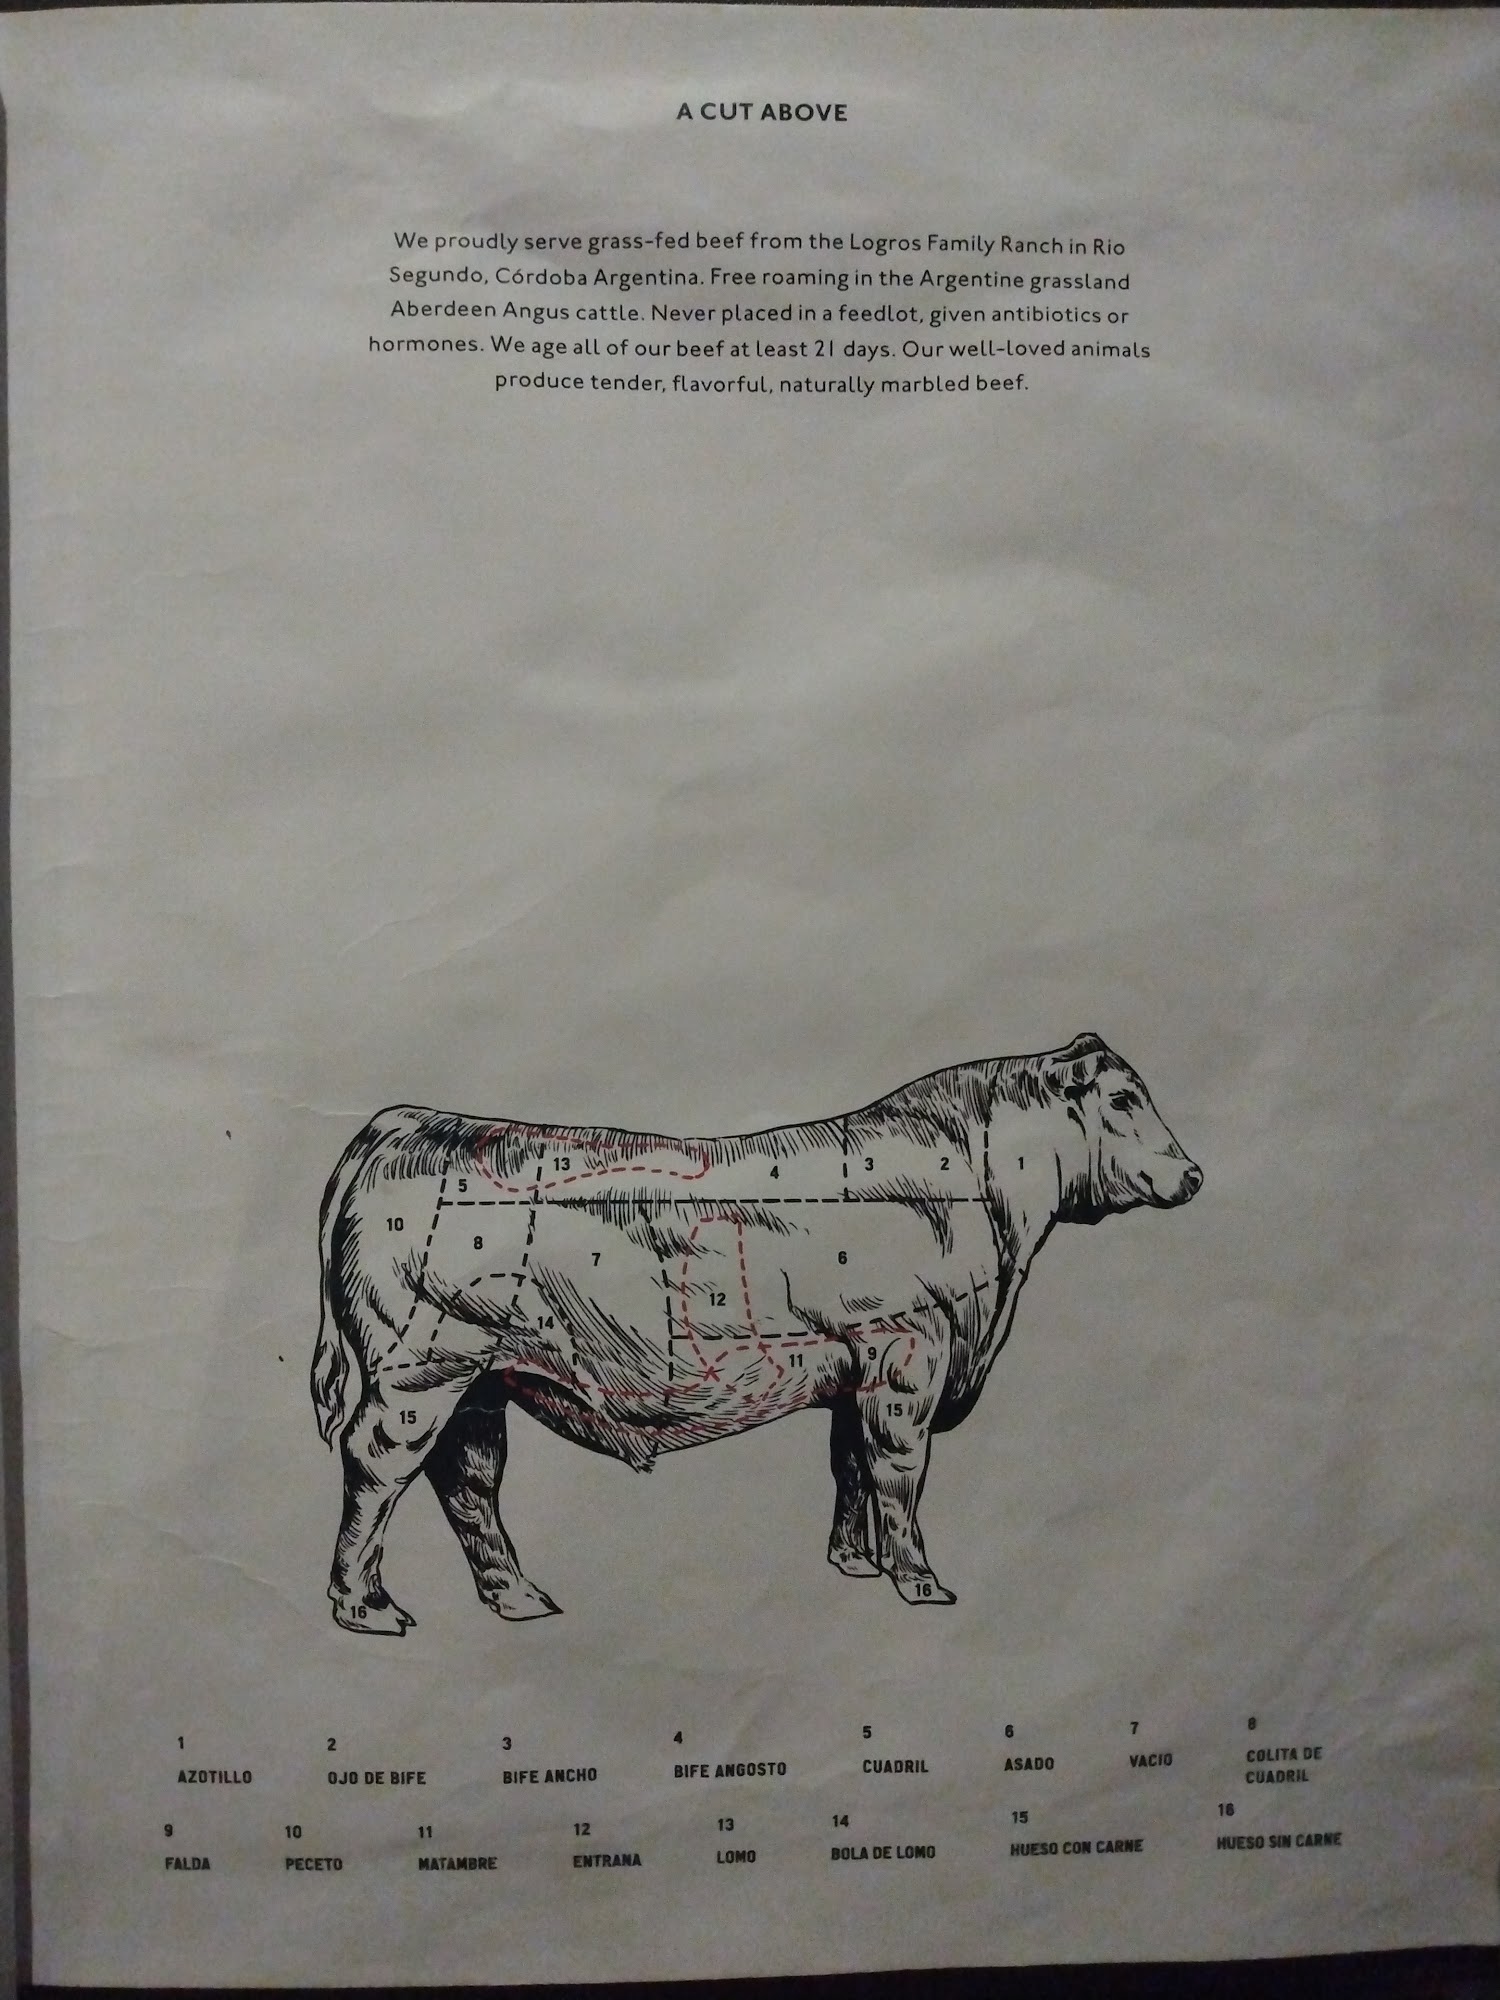 A CUT ABOVE
We proudly serve grass-fed beef from the Logros Family Ranch in Rio
Segundo, Córdoba Argentina. Free roaming in the Argentine grassland
Aberdeen Angus cattle. Never placed in a feedlot, given antibiotics or
hormones. We age all of our beef at least 21 days. Our well-loved animals
produce tender, flavorful, naturally marbled beef.
13
5
4
3
2
1
10
8
7
6
12
14
11
9
15
15
16
16
1
AZOTILLO
2
OJO DE BIFE
3
BIFE ANCHO
4
BIFE ANGOSTO
5
CUADRIL
6
ASADO
7
VACIO
8
COLITA DE
CUADRIL
9
FALDA
10
PECETO
11
MATAMBRE
12
ENTRANA
13
LOMO
14
BOLA DE LOMO
15
HUESO CON CARNE
16
HUESO SIN CARNE